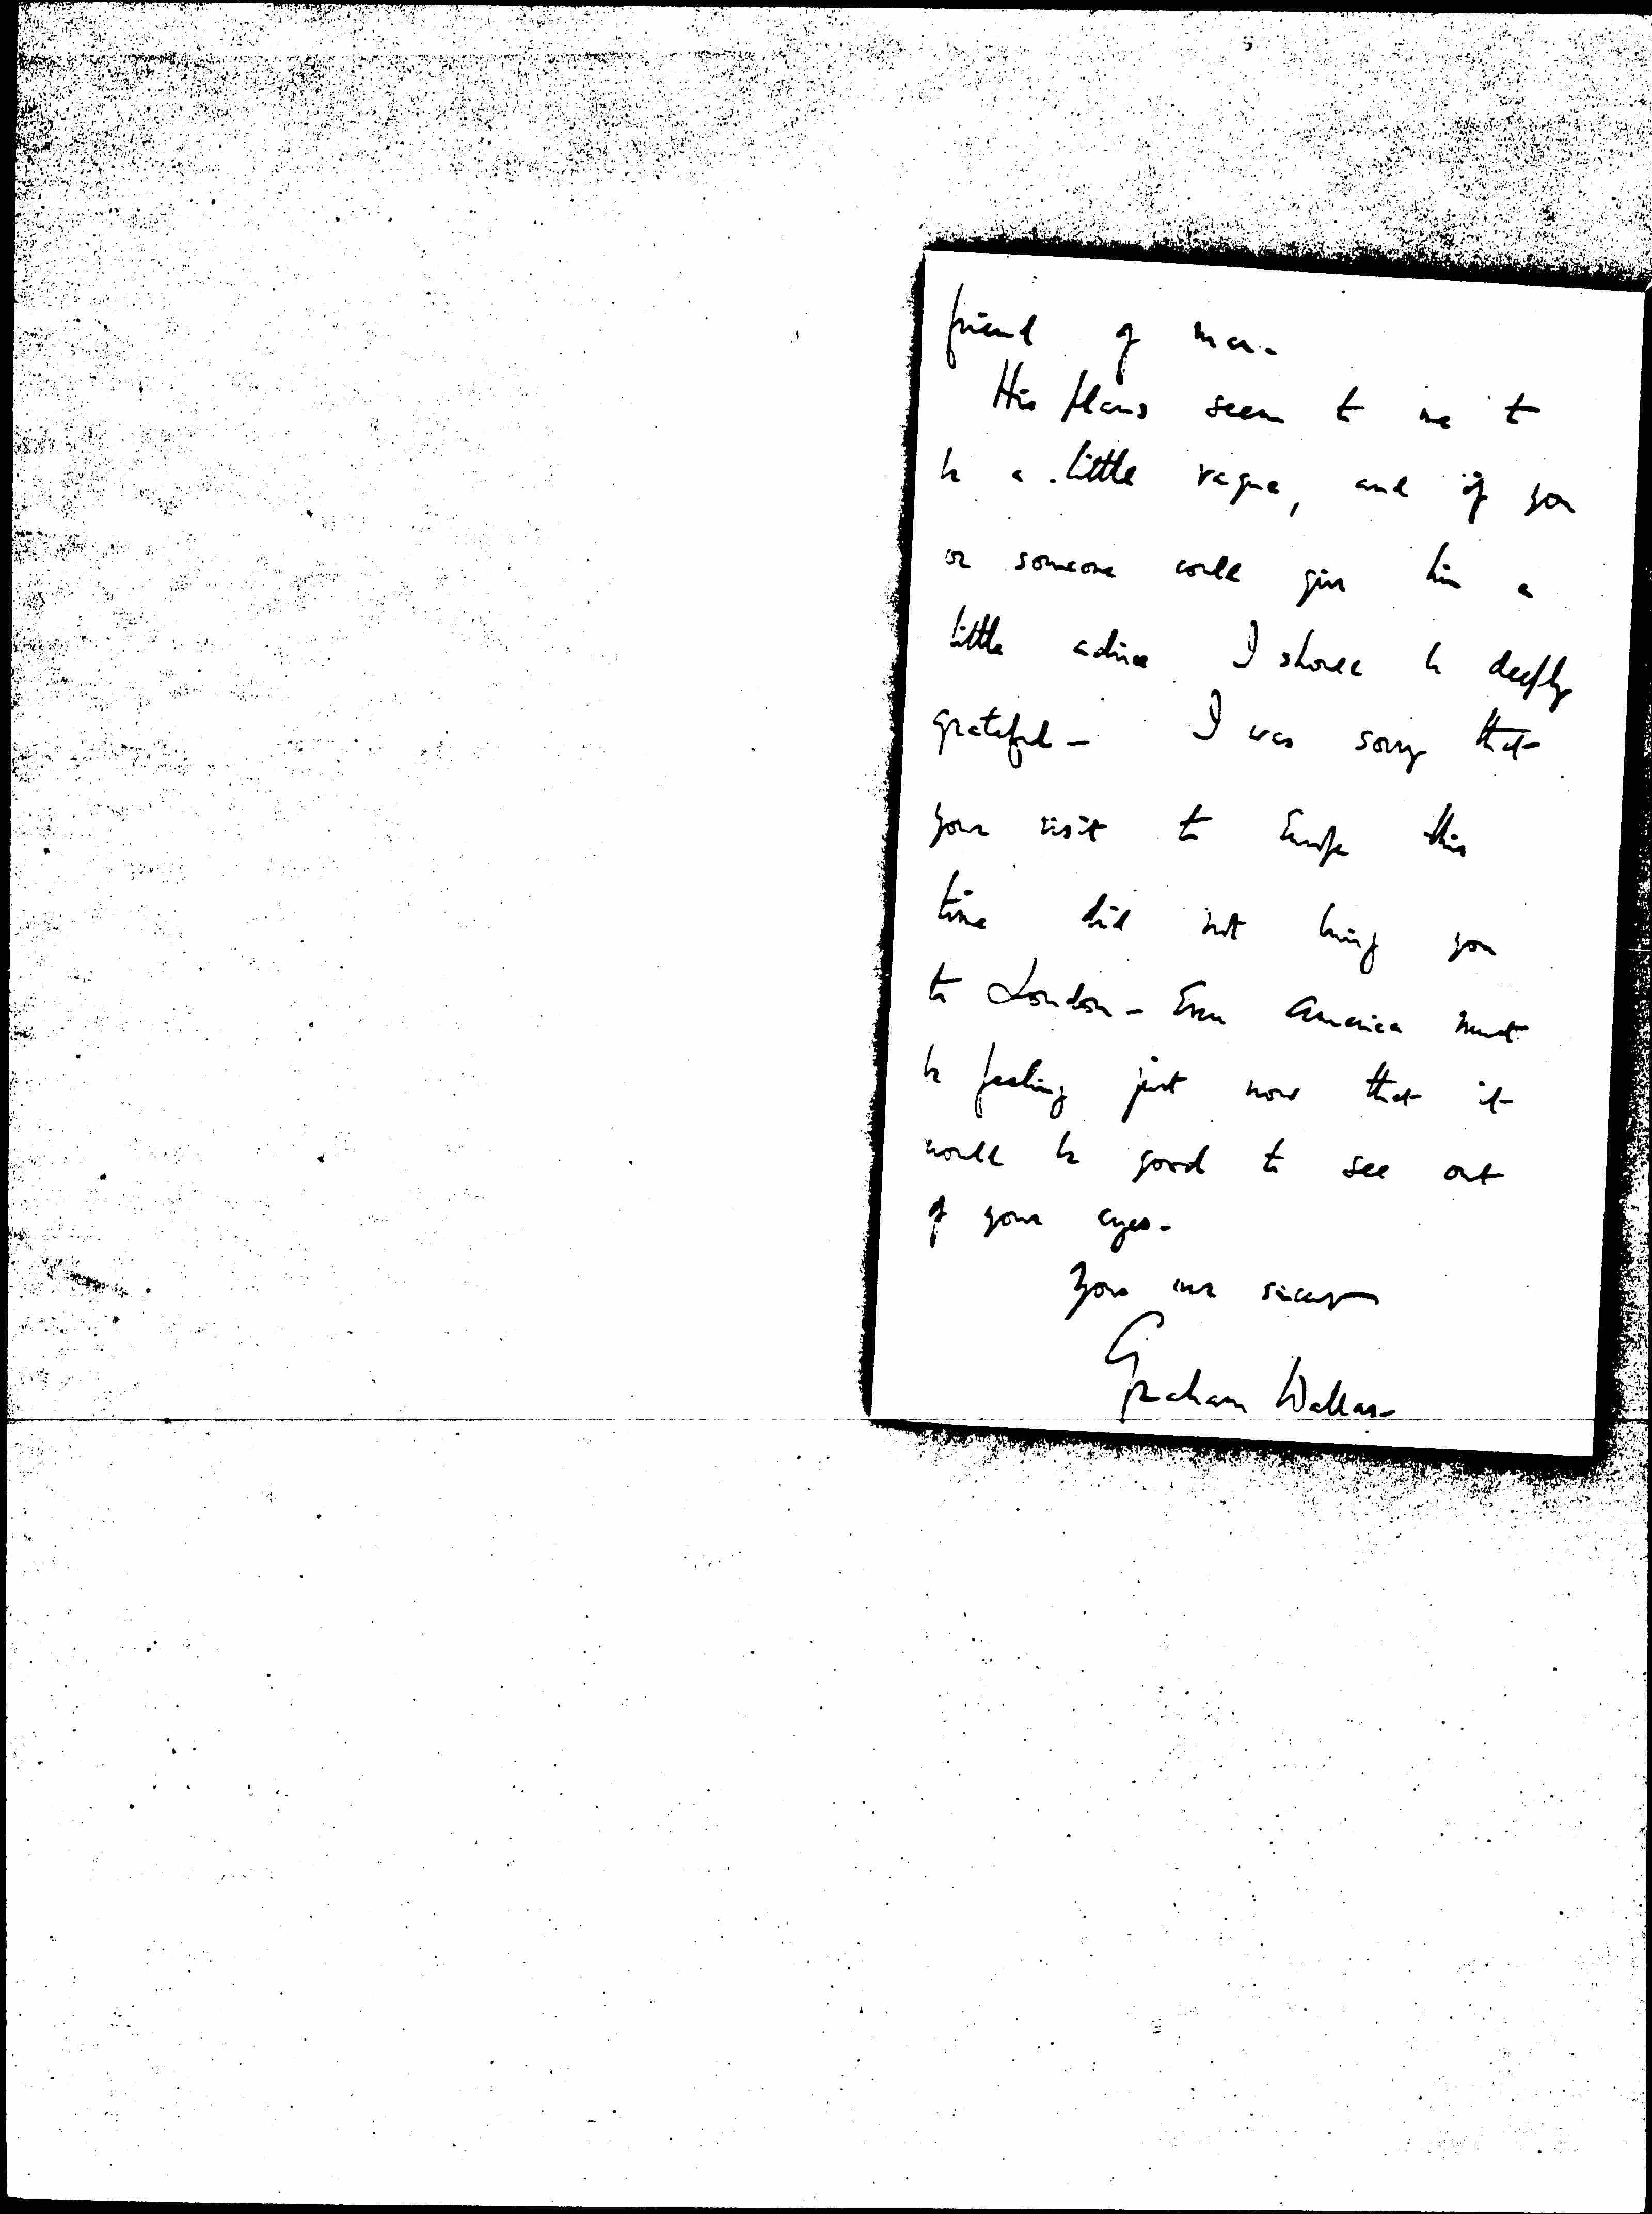 friend of man.
His plans seem to me to
be a little vague, and if you
or someone could give him a
little advice I should be deeply
grateful – I was sorry that
your visit to Europe this
time did not bring you
to London – Even America must
be feeling just now that it
would be good to see out
of your eyes –
Yours ever sincerely
Graham Wallas –